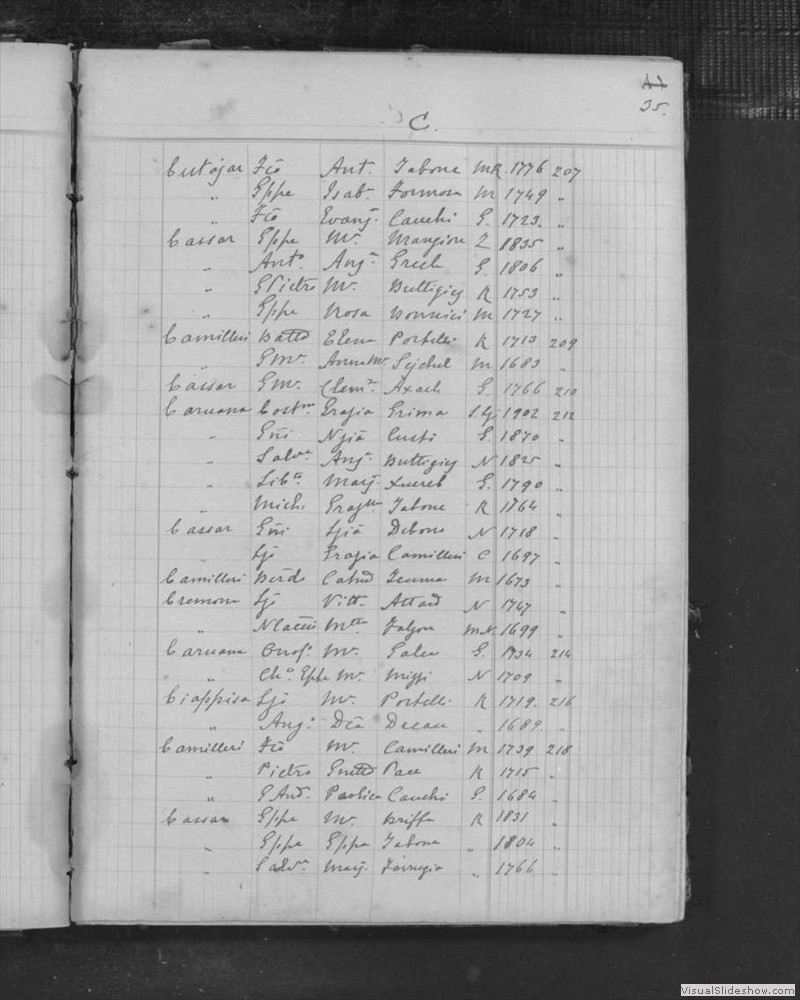 35.
C.
Cutajar Fco Ant. Tabone MR. 1776 207
" Gppe Isab. Formosa M 1749 "
" Fco Evang. Cauchi G. 1723. "
Cassar Gppe Mr. Mangion Z 1835 "
" Anto Ang. Grech G. 1806 "
" GPietro Mr. Buttigieg R 1753 "
" Gppe Rosa Bonnici M 1727 "
Camilleri Batta Elena Portelli R 1713 209
" GMr. AnnaMr. Sejchel M 1683 "
Cassar GMr. Clem. Axach G. 1766 210
Caruana Cost. Grazia Grima 1902 212
" Gni Ngia Custi G. 1870 "
" Salv. Ang. Buttigieg N 1825 "
" Lib. Marg. Xuereb G. 1790 "
" Mich. Tabone R 1764 "
Cassar Gni Debono N 1718 "
" Grazia Camilleri C 1697 "
Camilleri M 1673 "
Cremona Vitt. Attard N 1747 "
" Falzon 1699 "
Caruana Onof. Mr. Galea G. 1734 214
" Gppe Mr. Mizzi N 1709 "
Ciappisa Mr. Portelli R 1719. 216
" Ang. " 1689. "
Camilleri Fco Mr. Camilleri M 1739 218
" Pietro Pace R 1715 "
" GAnd. Paolica Cauchi G. 1684 "
Cassar Gppe Mr. Briffa R 1831 "
" Gppe Gppa Tabone " 1804 "
" Salv. Marg. Farrugia " 1766 "
VisualSlideshow.com